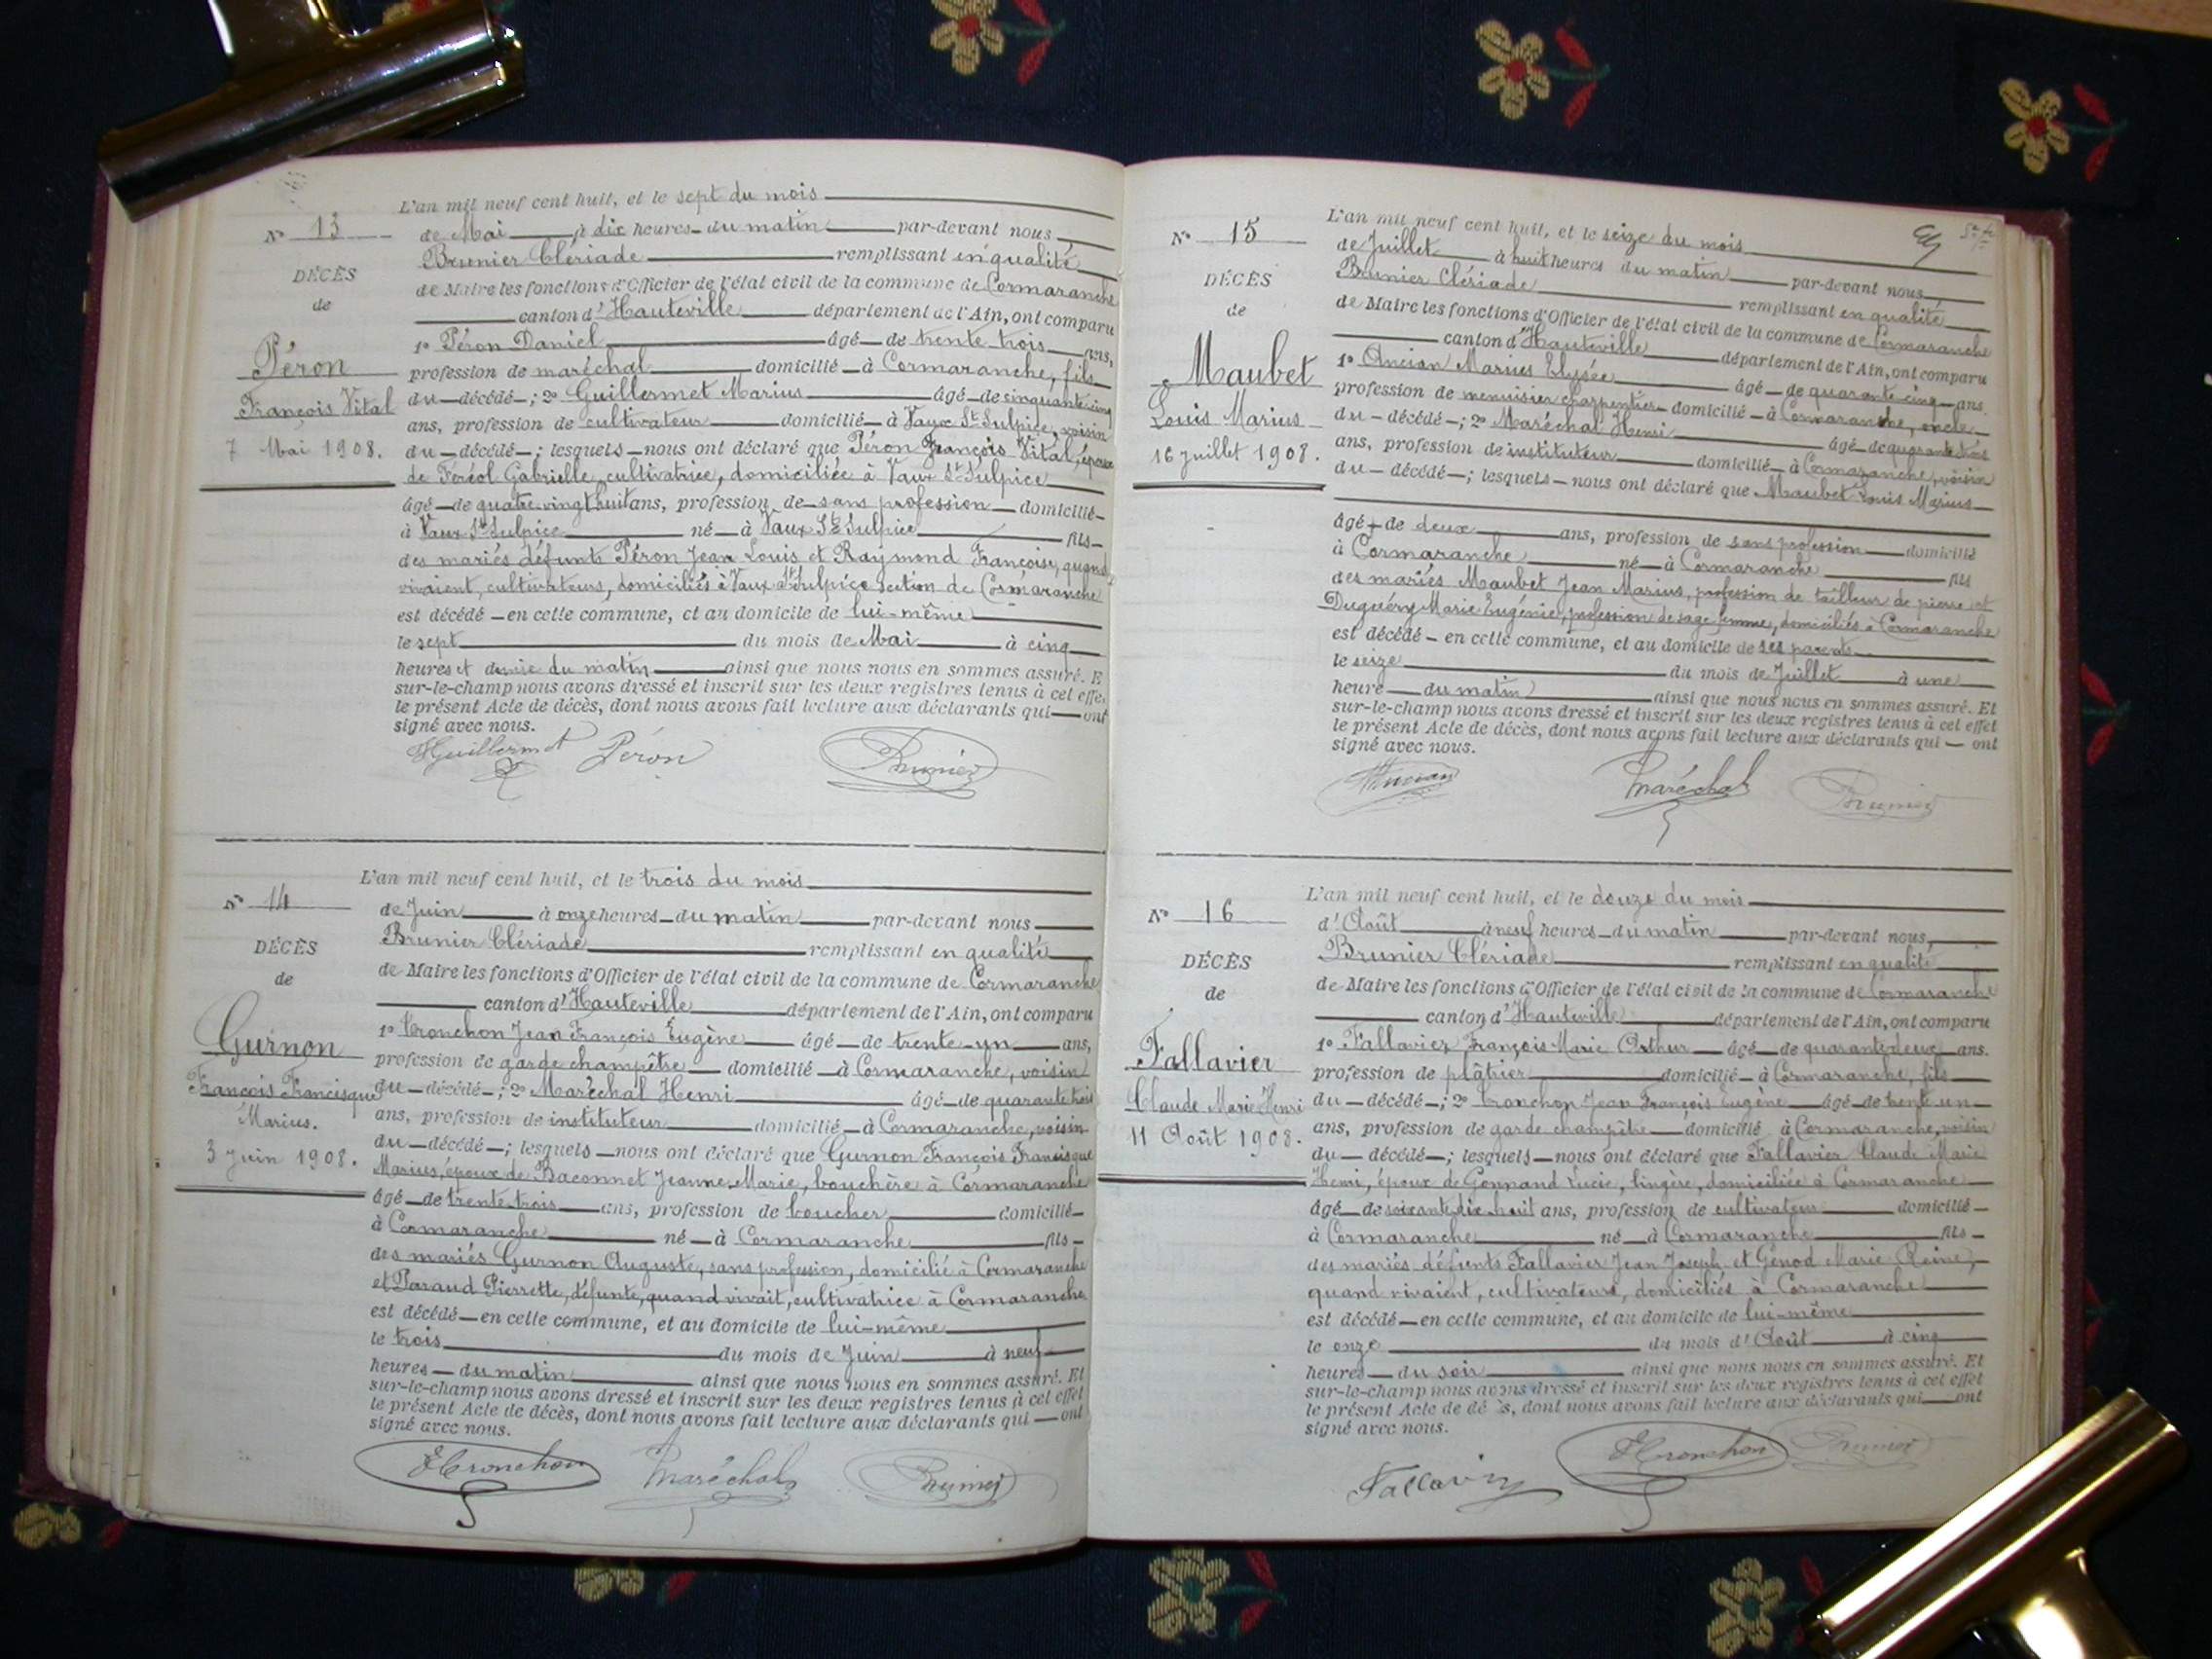 L'an mil neuf cent huit, et le sept du mois
N° 13
de Mai à dix heures du matin par-devant nous
Brunier Clériade remplissant en qualité
DÉCÈS
de Maire les fonctions d'Officier de l'état civil de la commune de Cormaranche
de
canton d'Hauteville département de l'Ain, ont comparu
1° Péron Daniel âgé de trente trois ans,
Péron
profession de maréchal domicilié à Cormaranche, fils
François Vital
du décédé ; 2° Guillermet Marius âgé de cinquante cinq
ans, profession de cultivateur domicilié à Vaux St Sulpice, voisin
7 Mai 1908.
du décédé ; lesquels nous ont déclaré que Péron François Vital, époux
de Féréol Gabrielle, cultivatrice, domiciliée à Vaux St Sulpice
âgé de quatre vingt huit ans, profession de sans profession domicilié
à Vaux St Sulpice né à Vaux St Sulpice fils
des mariés défunts Péron Jean Louis et Raymond Françoise, quand
vivaient, cultivateurs, domiciliés à Vaux St Sulpice section de Cormaranche
est décédé en cette commune, et au domicile de lui-même
le sept du mois de Mai à cinq
heures et demie du matin ainsi que nous nous en sommes assuré. E
sur-le-champ nous avons dressé et inscrit sur les deux registres tenus à cet effet
le présent Acte de décès, dont nous avons fait lecture aux déclarants qui ont
signé avec nous.
Guillermet Péron Brunier
L'an mil neuf cent huit, et le trois du mois
N° 14
de Juin à onze heures du matin par-devant nous
Brunier Clériade remplissant en qualité
DÉCÈS
de Maire les fonctions d'Officier de l'état civil de la commune de Cormaranche
de
canton d'Hauteville département de l'Ain, ont comparu
1° Tronchon Jean François Eugène âgé de trente-un ans,
Gurnon
profession de garde champêtre domicilié à Cormaranche, voisin
François Francisque
du décédé ; 2° Maréchal Henri âgé de quarante trois
Marius.
ans, profession de instituteur domicilié à Cormaranche, voisin
3 Juin 1908.
du décédé ; lesquels nous ont déclaré que Gurnon François Francisque
Marius, époux de Baconnet Jeanne-Marie, bouchère à Cormaranche
âgé de trente trois ans, profession de boucher domicilié
à Cormaranche né à Cormaranche fils
des mariés Gurnon Auguste, sans profession, domicilié à Cormaranche
et Paraud Pierrette, défunte, quand vivait, cultivatrice à Cormaranche
est décédé en cette commune, et au domicile de lui-même
le trois du mois de Juin à neuf
heures du matin ainsi que nous nous en sommes assuré. Et
sur-le-champ nous avons dressé et inscrit sur les deux registres tenus à cet effet
le présent Acte de décès, dont nous avons fait lecture aux déclarants qui ont
signé avec nous.
ETronchon Maréchal Brunier
L'an mil neuf cent huit, et le seize du mois
N° 15
de Juillet à huit heures du matin par-devant nous
Brunier Clériade remplissant en qualité
DÉCÈS
de Maire les fonctions d'Officier de l'état civil de la commune de Cormaranche
de
canton d'Hauteville département de l'Ain, ont comparu
1° Ancian Marius Elysée âgé de quarante-cinq ans.
Maubet
profession de menuisier charpentier domicilié à Cormaranche, oncle
Louis Marius
du décédé ; 2° Maréchal Henri âgé de quarante trois
ans, profession de instituteur domicilié à Cormaranche, voisin
16 Juillet 1908.
du décédé ; lesquels nous ont déclaré que Maubet Louis Marius
âgé de deux ans, profession de sans profession domicilié
à Cormaranche né à Cormaranche fils
des mariés Maubet Jean Marius, profession de tailleur de pierre et
Duguéry Marie Eugénie, profession de sage femme, domiciliés à Cormaranche
est décédé en cette commune, et au domicile de ses parents
le seize du mois de Juillet à une
heure du matin ainsi que nous nous en sommes assuré. Et
sur-le-champ nous avons dressé et inscrit sur les deux registres tenus à cet effet
le présent Acte de décès, dont nous avons fait lecture aux déclarants qui ont
signé avec nous.
Ancian Maréchal Brunier
L'an mil neuf cent huit, et le douze du mois
N° 16
d'Août à neuf heures du matin par-devant nous,
Brunier Clériade remplissant en qualité
DÉCÈS
de Maire les fonctions d'Officier de l'état civil de la commune de Cormaranche
de
canton d'Hauteville département de l'Ain, ont comparu
1° Fallavier François-Marie Arthur âgé de quarante deux ans.
Fallavier
profession de plâtrier domicilié à Cormaranche, fils
Claude Marie Henri
du décédé ; 2° Tronchon Jean François Eugène âgé de trente un
ans, profession de garde champêtre domicilié à Cormaranche, voisin
11 Août 1908.
du décédé ; lesquels nous ont déclaré que Fallavier Claude Marie
Henri, époux de Gonnand Lucie, lingère, domiciliée à Cormaranche
âgé de soixante dix huit ans, profession de cultivateur domicilié
à Cormaranche né à Cormaranche fils
des mariés défunts Fallavier Jean Joseph et Génod Marie Reine,
quand vivaient, cultivateurs, domiciliés à Cormaranche
est décédé en cette commune, et au domicile de lui-même
le onze du mois d'Août à cinq
heures du soir ainsi que nous nous en sommes assuré. Et
sur-le-champ nous avons dressé et inscrit sur les deux registres tenus à cet effet
le présent Acte de décès, dont nous avons fait lecture aux déclarants qui ont
signé avec nous.
Fallavier ETronchon Brunier